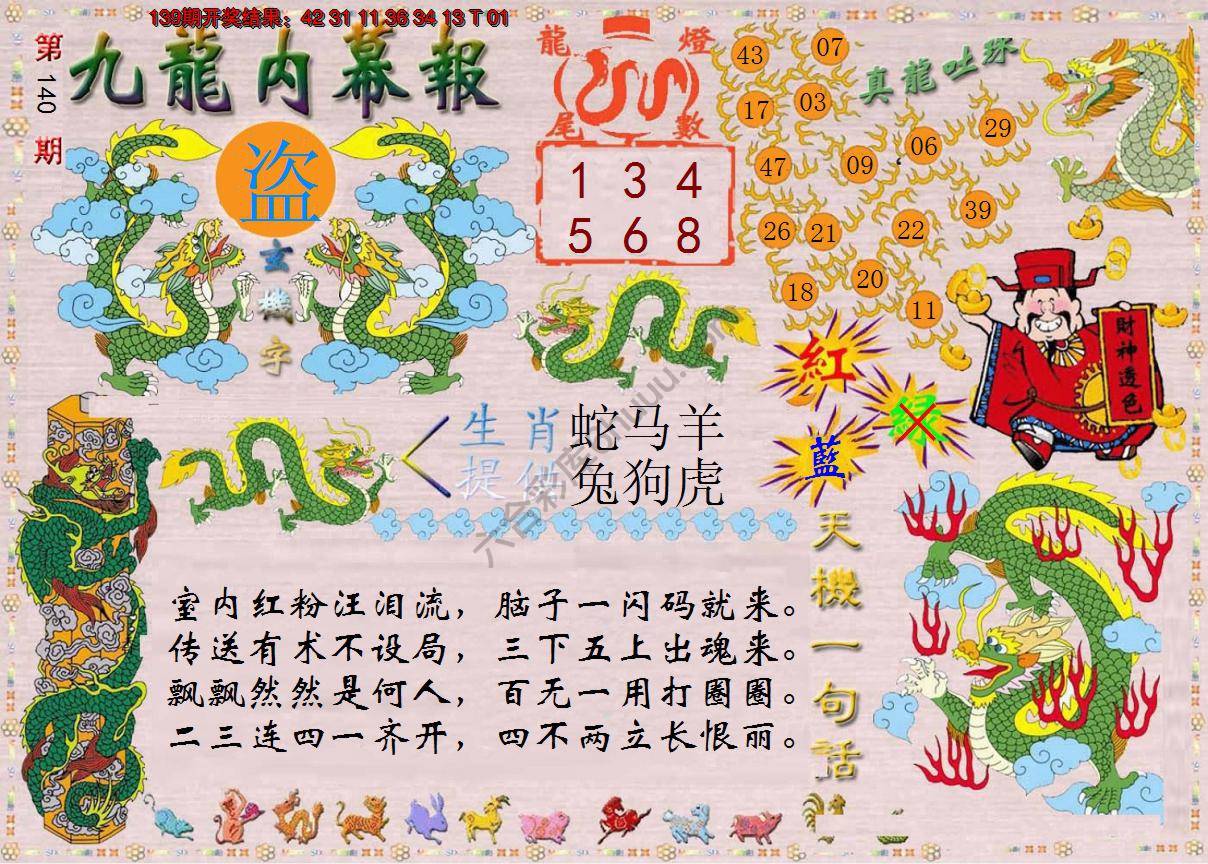 139期开奖结果：42 31 11 36 34 13 T 01
第140期
九龍内幕報
盗
玄機字
龍燈尾數
1 3 4
5 6 8
真龍吐珠
43 07
17 03
47 09 06 29
26 21 22 39
18 20 11
財神透色
紅
绿
藍
生肖 蛇马羊
提供 兔狗虎
天機一句話
室内红粉汪泪流，脑子一闪码就来。
传送有术不设局，三下五上出魂来。
飘飘然然是何人，百无一用打圈圈。
二三连四一齐开，四不两立长恨丽。